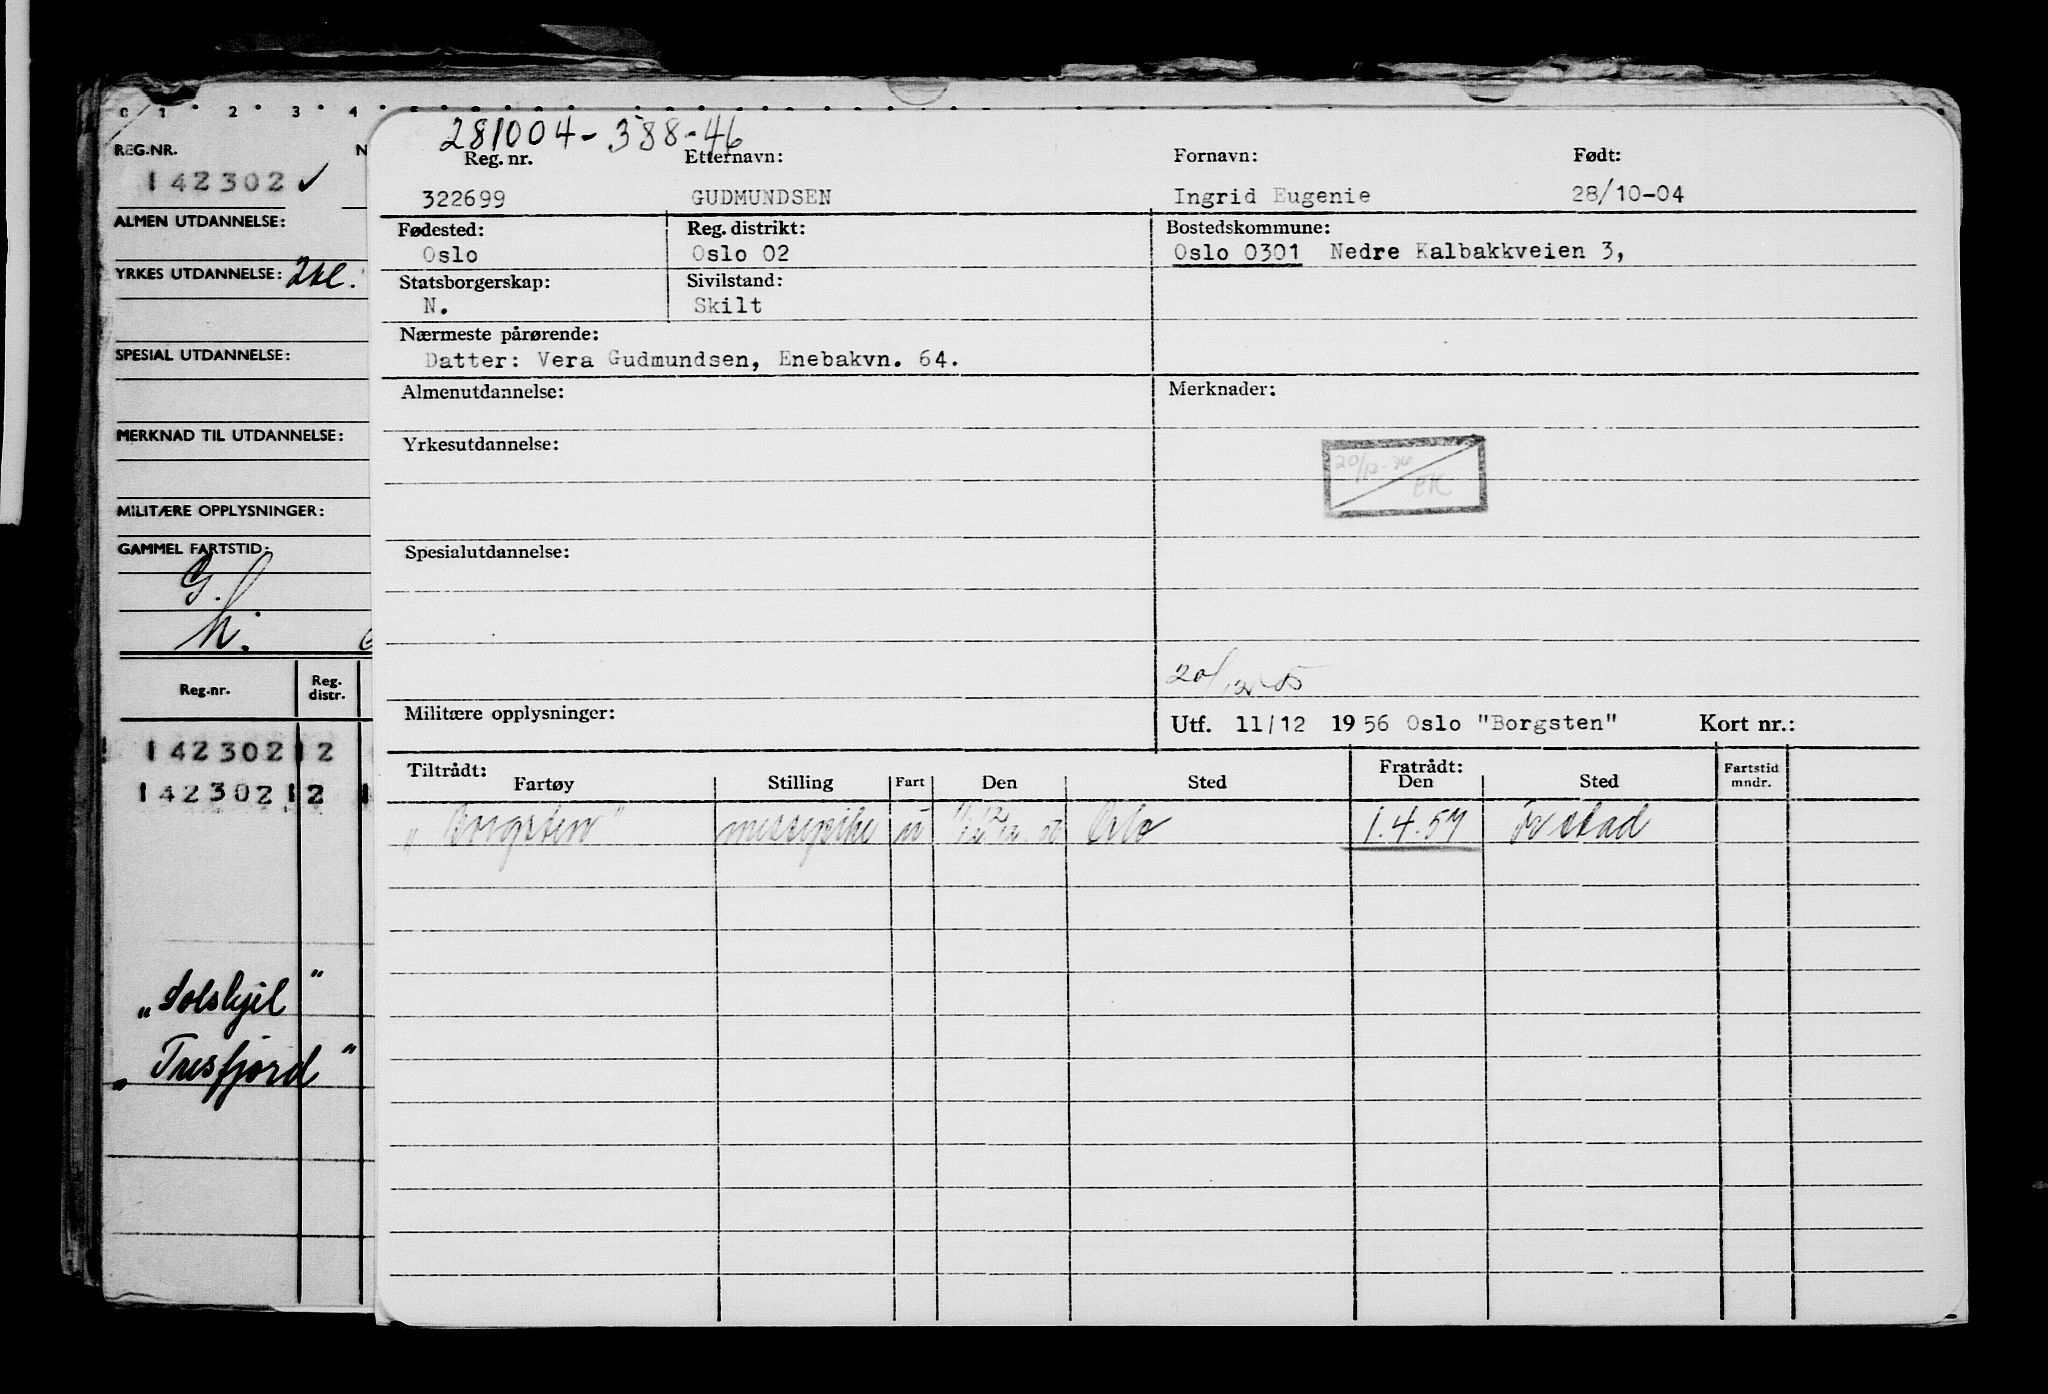 0 1 2 3 4
REG.NR. N
142302 ✓
ALMEN UTDANNELSE:
YRKES UTDANNELSE:
SPESIAL UTDANNELSE:
MERKNAD TIL UTDANNELSE:
MILITÆRE OPPLYSNINGER:
GAMMEL FARTSTID:
G.
h.
Reg.nr. Reg. distr.
142302 12
142302 12 1
"Solskjel"
"Tresfjord"
281004-388-46
Reg. nr. Etternavn: Fornavn: Født:
322699 GUDMUNDSEN Ingrid Eugenie 28/10-04
Fødested: Reg. distrikt: Bostedskommune:
Oslo Oslo 02 Oslo 0301 Nedre Kalbakkveien 3,
Statsborgerskap: Sivilstand:
N. Skilt
Nærmeste pårørende:
Datter: Vera Gudmundsen, Enebakvn. 64.
Almenutdannelse: Merknader:
Yrkesutdannelse:
20/12-
Spesialutdannelse:
20/12
Militære opplysninger: Utf. 11/12 1956 Oslo "Borgsten" Kort nr.:
Tiltrådt: Fratrådt:
Fartøy Stilling Fart Den Sted Den Sted Fartstid mndr.
"Borgsten" messepike u Oslo 1.4.57 Frstad